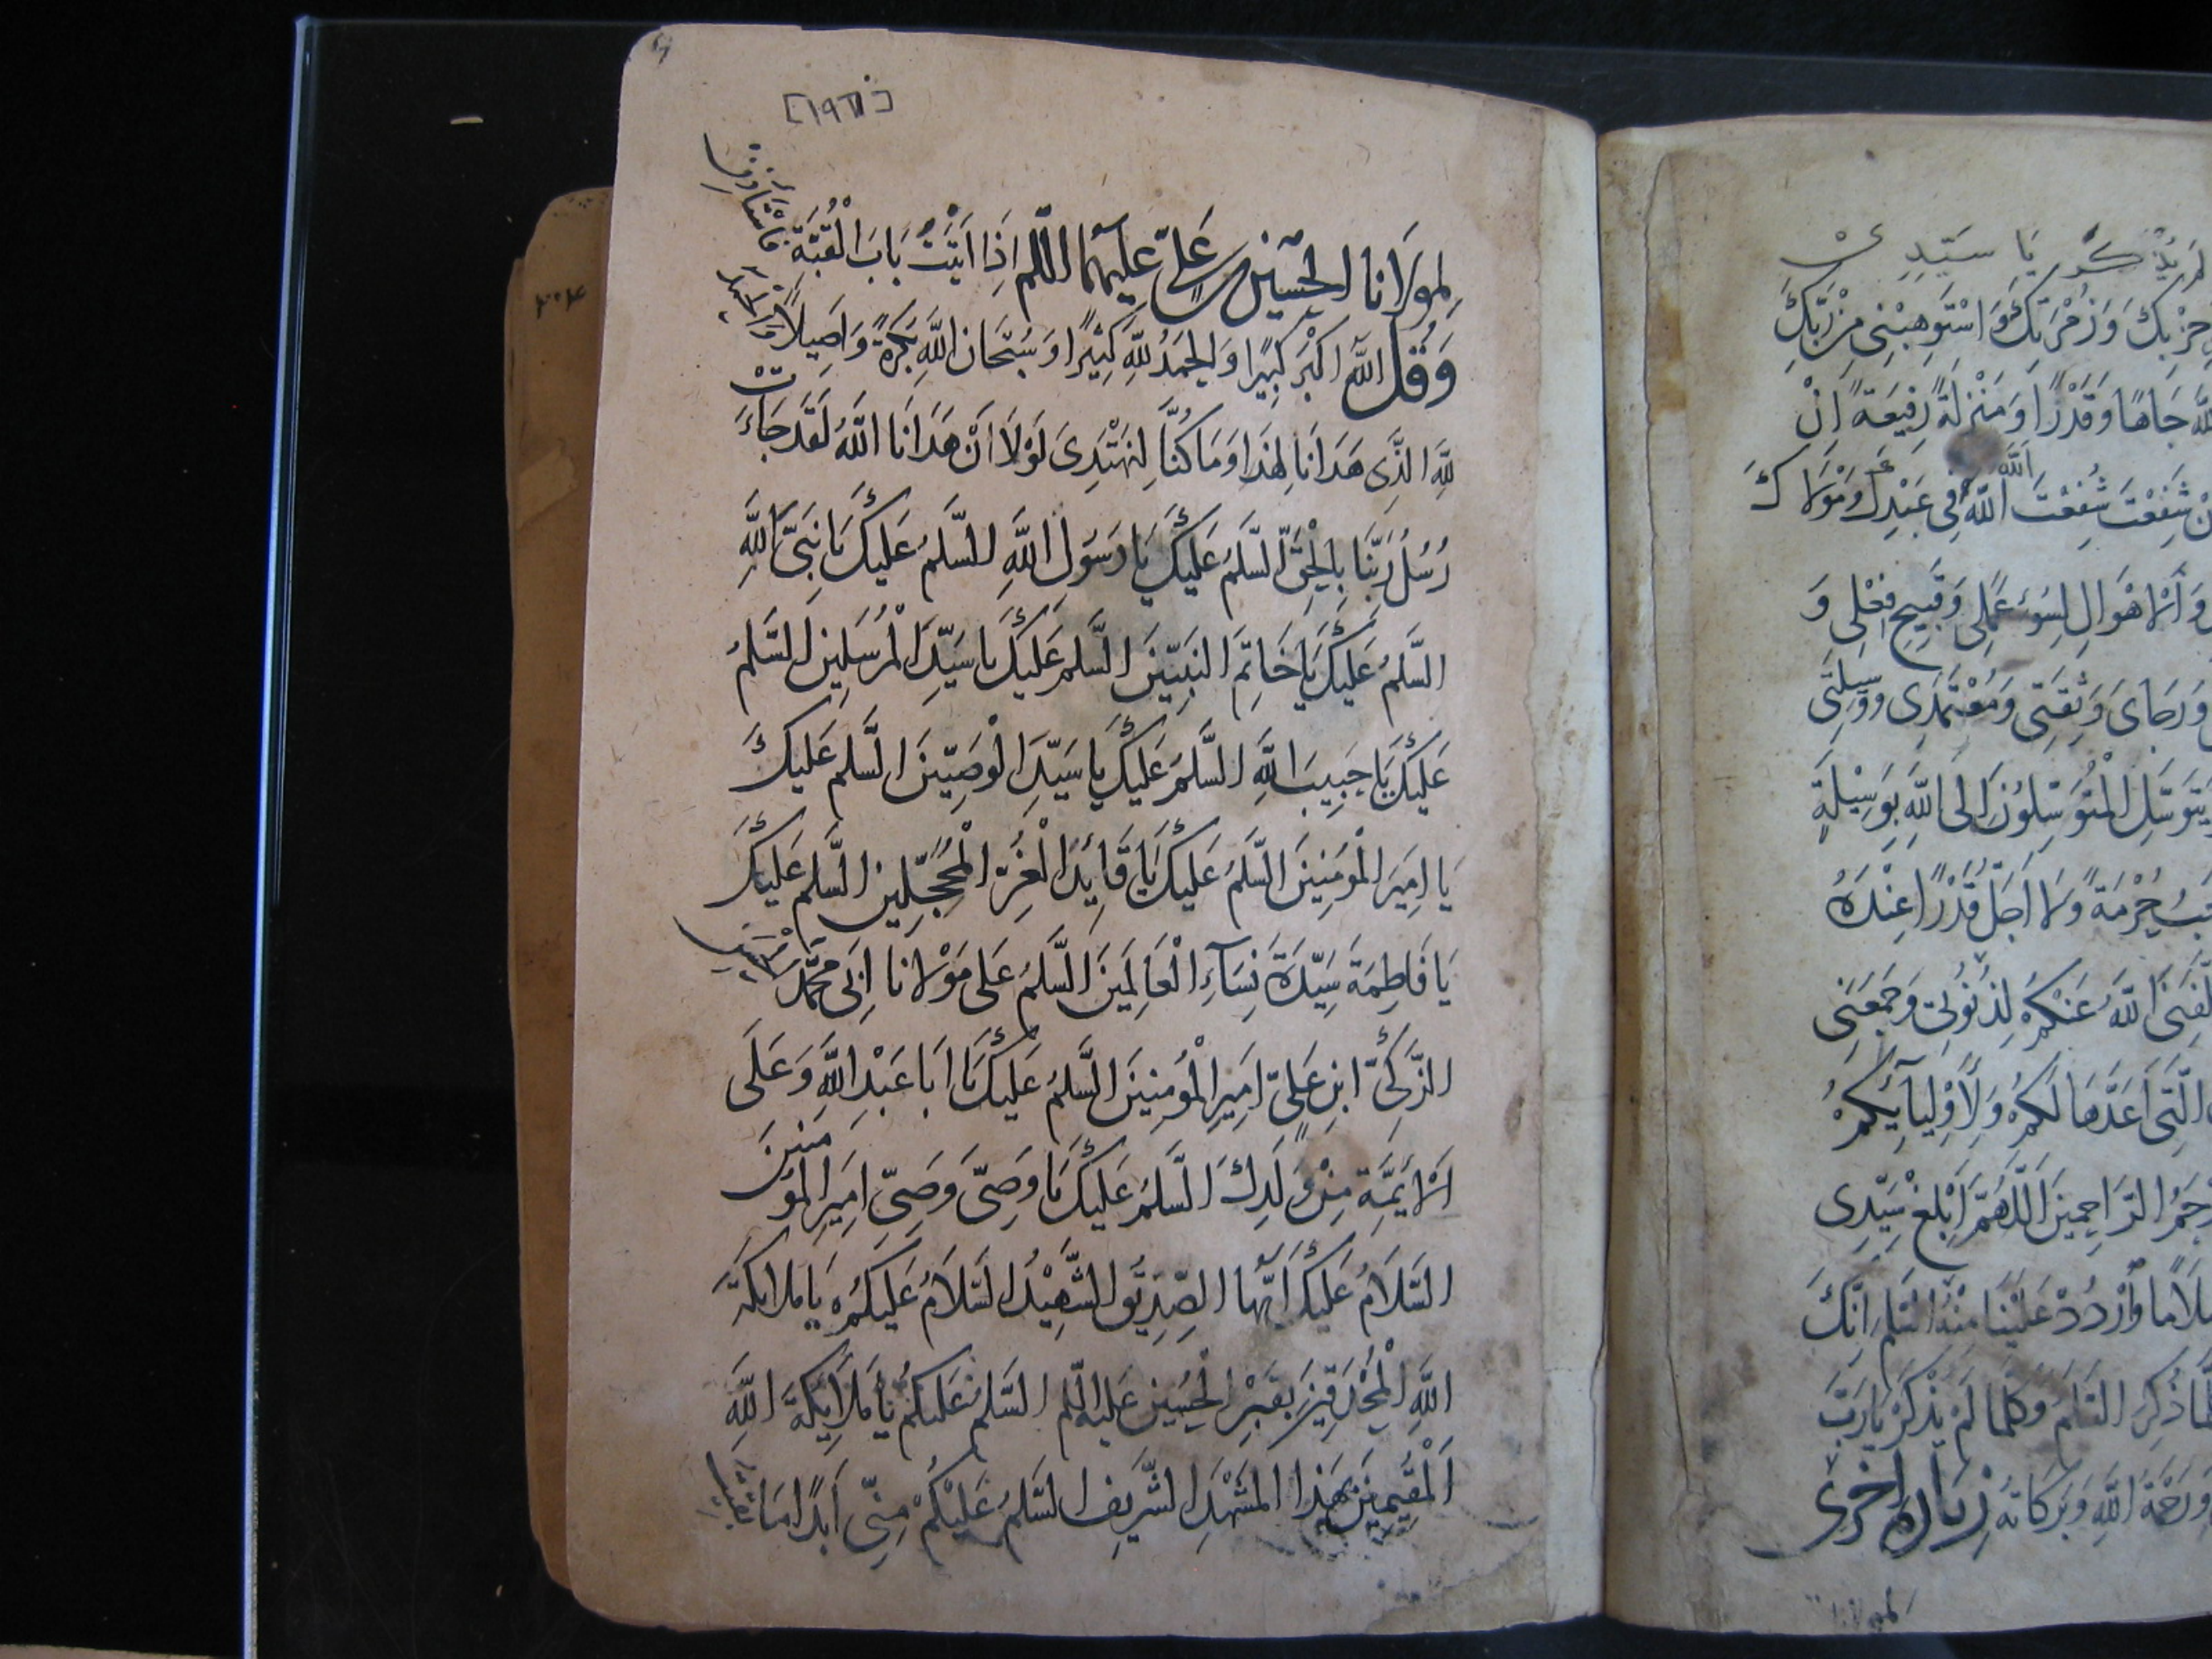 يَا سَيِّدِى
حِزْبِكَ وَزُمْرَتِكَ وَاسْتَوْهِبْنِى مِنْ رَبِّكَ
جَاهًا وَقَدْرًا وَمَنْزِلَةً رَفِيعَةً اِنْ
شَفَعْتَ شُفِعْتَ اللَّه فِى عَبْدِكَ وَمَوْلَاكَ
وَالْاَهْوَالِ لِسُوءِ عَمَلِى وَقَبِيحِ فِعْلِى وَ
وَرَجَاىَ وَثِقَتِى وَمُعْتَمَدِى وَوَسِيلَتِى
يَتَوَسَّلِ الْمُتَوَسِّلُونَ اِلَى اللَّهِ بِوَسِيْلَةٍ
حُرْمَةً وَلَا اَجَلَّ قَدْرًا عِنْدَهُ
اللَّهُ عَنْكُمْ لِذُنُوبِى وَجَمَعَنِى
الَّتِى اَعَدَّهَا لَكُمْ وَلِاَوْلِيَآئِكُمْ
الرَّاحِمِينَ اَللَّهُمَّ اَبْلِغْ سَيِّدِى
سَلَامًا وَارْدُدْ عَلَيْنَا مِنْهُ السَّلَم اِنَّكَ
ذُكِرَ السَّلَمُ وَكُلَّمَا لَمْ يُذْكَرْ يَا رَبَّ
وَرَحْمَةُ اللَّهِ وَبَرَكَاتُهُ زِيَارَة اُخرى
لمولانا
[١٩٦]
لِمولَانا الحُسَين بن عَلىّ عَليهما السّلم اِذَا اَتَيْتَ بَابَ الْقُبَّةِ فَاسْتَأذِن
وَقُل اللَّهُ اَكْبَرُ كَبِيرًا وَالحَمدُ لِلَّهِ كَثِيْرًا وَسُبْحَانَ اللَّهِ بُكْرَةً وَاَصِيلًا وَالحَمدُ
لِلَّهِ الَّذِى هَدَانَا لِهَذَا وَمَا كُنَّا لِنَهْتَدِىَ لَوْلَا اَنْ هَدَانَا اللَّهُ لَقَد جَاءَتْ
رُسُلُ رَبِّنَا بِالْحَقِّ السَّلَمُ عَلَيكَ يَا رَسُولَ اللَّهِ السَّلَمُ عَلَيكَ يَا نَبِىَّ اللَّهِ
السَّلَمُ عَلَيكَ يَا خَاتِمَ النَبِيّينَ السَّلم عَلَيكَ يَا سَيِّدَ الْمُرْسَلِينَ السَّلَمُ
عَلَيكَ يَا حَبِيبَ اللَّهِ السَّلَمُ عَلَيكَ يَا سَيِّدَ الْوَصِيّينَ السَّلم عَلَيكَ
يَا امِيَر الْمُؤمِنِينَ السَّلَمُ عَلَيكَ يَا قَايِدَ الْغُرِّ الْمُحَجَّلِين السَّلم عَلَيكَ
يَا فَاطِمَةَ سَيِّدَةَ نِسَآءِ الْعَالَمِينَ السَّلَمُ عَلى مَوْلَانا اَبِى مُحَمَّد الحَسَن
الزَّكىّ ابن عَلىّ اَمِيرِ الْمُؤمِنِينَ السَّلَمُ عَلَيكَ يَا اَبا عَبْدِ اللَّهِ وَعَلَى
الْاَيمَّة مِن وُلْدِكَ السَّلَمُ عَلَيكَ يَا وَصِىَّ وَصِىِّ امِيَرِ المُؤمنينَ
السَّلَامُ عَلَيكَ اَيُّها الصِّدِيقُ الشَّهِيْدُ السَلَامُ عَلَيكُمْ يَا مَلَائكَة
اللَّهِ الْمُحْدِقِينَ بِقَبْرِ الْحُسَين عَليه السّلم السَّلَم عَلَيكُم يَا مَلَائِكَةَ اللَّهِ
اَلْمُقِيمِينَ بِهَذَا المَشْهَدِ الشَّرِيفِ السَّلَمُ عَلَيْكُمْ مِنِّى اَبَدًا مَا بَقِيتُ